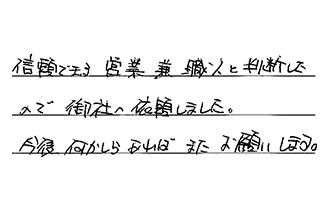 信頼できる 営業 兼 職人と判断した
ので 御社へ依頼しました。
今後 何かしら あれば また お願いします。